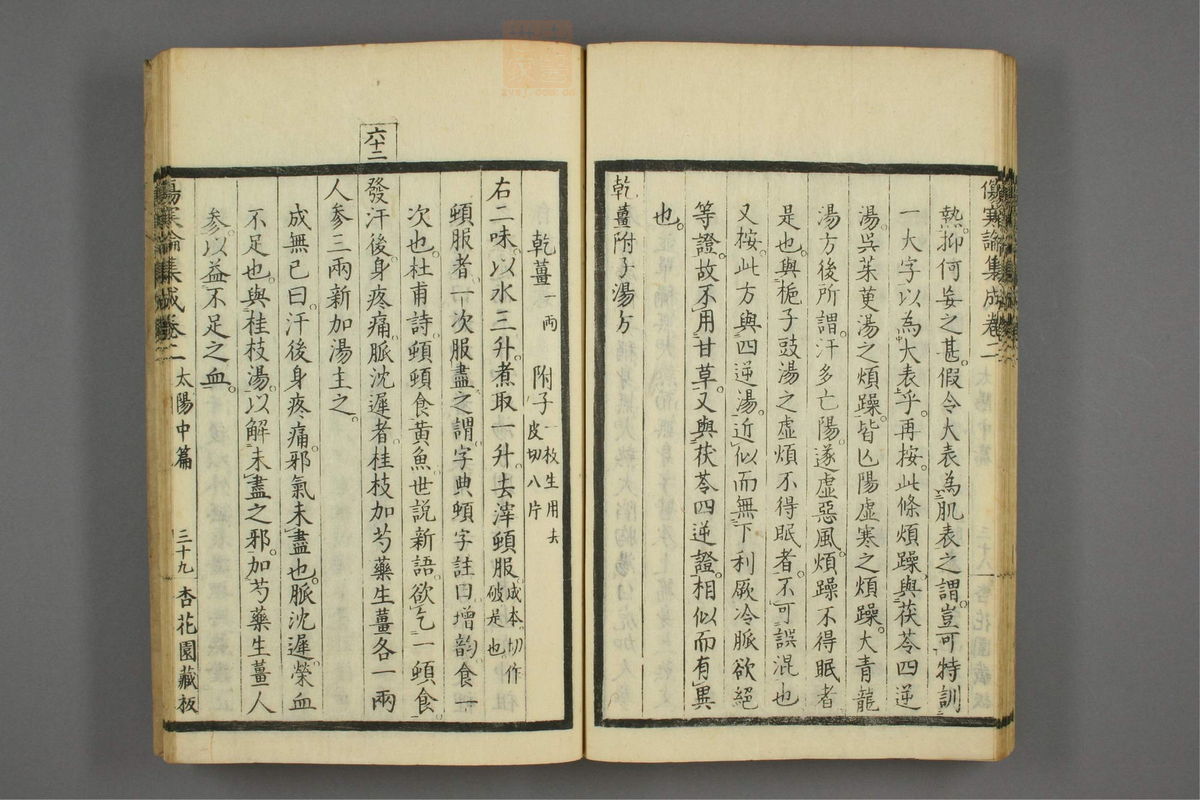 傷寒論集成卷二
熱抑何妄之甚假令大表為肌表之謂豈可特訓
一大字以為大表乎再按此條煩躁與茯苓四逆
湯吳茱萸湯之煩躁皆亡陽虛寒之煩躁大青龍
湯方後所謂汗多亡陽遂虛惡風煩躁不得眠者
是也與梔子豉湯之虛煩不得眠者不可誤混也
又按此方與四逆湯近似而無下利厥冷脈欲絕
等證故不用甘草又與茯苓四逆證相似而有異
也
乾薑附子湯方
乾薑一兩 附子一枚生用去皮切八片
右二味以水三升煮取一升去滓頓服成本切作破是也
頓服者一次服盡之謂字典頓字註曰增韵食一
次也杜甫詩頓頓食黄魚世説新語欲乞一頓食
六十二
發汗後身疼痛脈沈遲者桂枝加芍藥生薑各一兩
人參三兩新加湯主之
成無已曰汗後身疼痛邪氣未盡也脈沈遲榮血
不足也與桂枝湯以解未盡之邪加芍藥生薑人
參以益不足之血
傷寒論集成卷二 太陽中篇 三十九 杏花園藏板